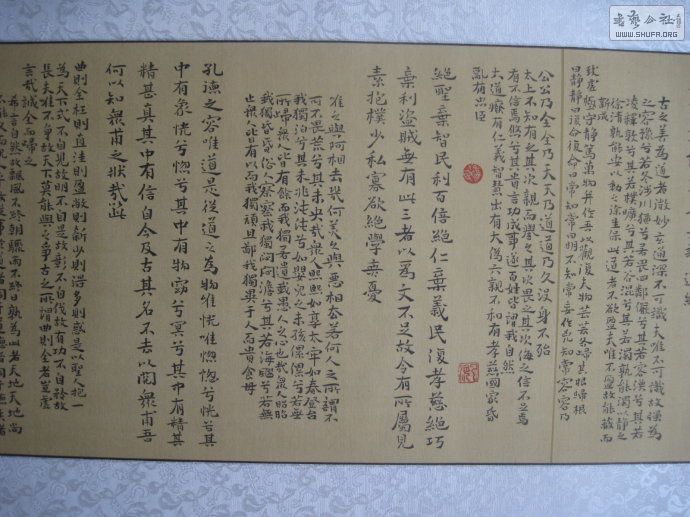 古之善為道者微妙玄通深不可識夫唯不可識故強為
之容豫兮若冬涉川猶兮若畏四鄰儼兮其若客渙兮其若
凌釋敦兮其若樸曠兮其若谷混兮其若濁孰能濁以靜之
徐清孰能安以動之徐生保此道者不欲盈夫唯不盈故能蔽而
新成
致虛極守靜篤萬物並作吾以觀復夫物芸芸各歸其根歸根
曰靜靜曰復命復命曰常知常曰明不知常妄作凶知常容容乃
公公乃全全乃天天乃道道乃久沒身不殆
太上不知有之其次親而譽之其次畏之其次侮之信不足焉
有不信焉悠兮其貴言功成事遂百姓皆謂我自然
大道廢有仁義智慧出有大偽六親不和有孝慈國家昏
亂有忠臣
絕聖棄智民利百倍絕仁棄義民復孝慈絕巧
棄利盜賊無有此三者以為文不足故令有所屬見
素抱樸少私寡欲絕學無憂
唯之與阿相去幾何美之與惡相去若何人之所謂不
可不畏荒兮其未央哉衆人熙熙如享太牢如春登台
我獨泊兮其未兆沌沌兮如嬰兒之未孩儽儽兮若無
所歸衆人皆有餘而我獨若遺我愚人之心也哉衆人昭昭
我獨昏昏俗人察察我獨悶悶澹兮其若海飂兮若無
止衆人皆有以而我獨頑且鄙我獨異于人而貴食母
孔德之容唯道是從道之為物唯恍唯惚惚兮恍兮其
中有象恍兮惚兮其中有物窈兮冥兮其中有精其
精甚真其中有信自今及古其名不去以閱衆甫吾
何以知衆甫之狀哉以此
曲則全枉則直窪則盈敝則新少則得多則惑是以聖人抱一
為天下式不自見故明不自是故彰不自伐故有功不自矜故
長夫唯不爭故天下莫能與之爭古之所謂曲則全者豈虛
言哉誠全而歸之
希言自然故飄風不終朝驟雨不終日孰為此者天地天地尚
書藝公社
WWW.SHUFA.ORG